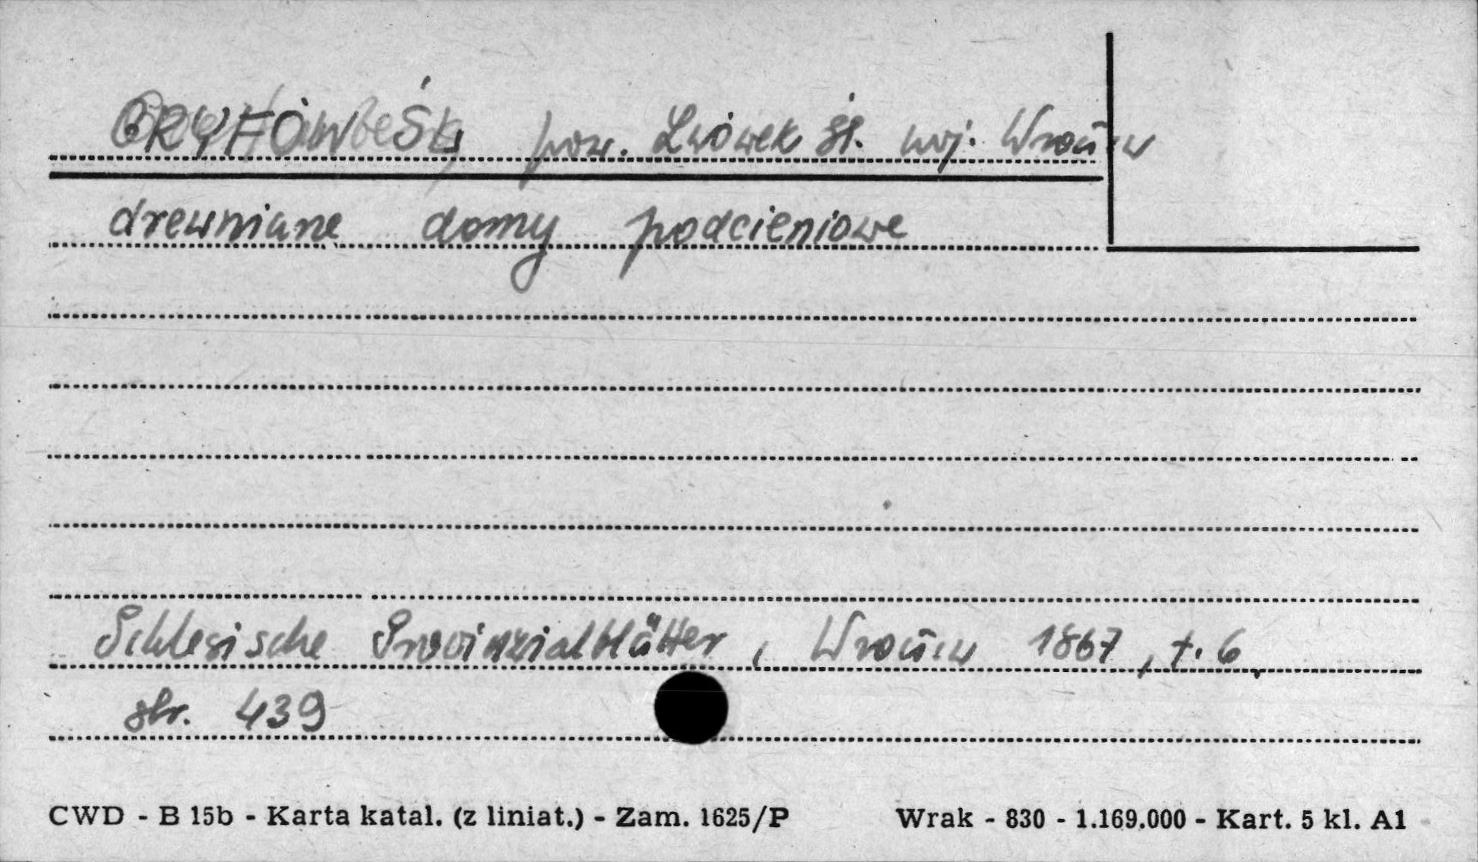 GRYFÓW ŚL, pow. Lwówek Śl. woj. Wrocław
drewniane domy podcieniowe
Schlesische Provinzialblätter, Wrocław 1867, t. 6,
str. 439
CWD - B 15b - Karta katal. (z liniat.) - Zam. 1625/P Wrak - 830 - 1.169.000 - Kart. 5 kl. A1